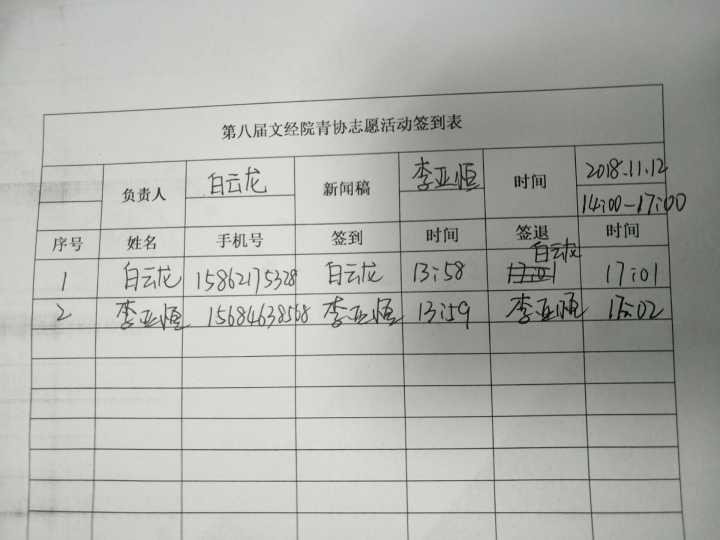 第八届文经院青协志愿活动签到表
负责人 白云龙 新闻稿 李亚恒 时间 2018.11.12
14:00-17:00
序号 姓名 手机号 签到 时间 签退 时间
1 白云龙 15862175328 白云龙 13:58 白云龙 17:01
2 李亚恒 15684638568 李亚恒 13:59 李亚恒 17:02